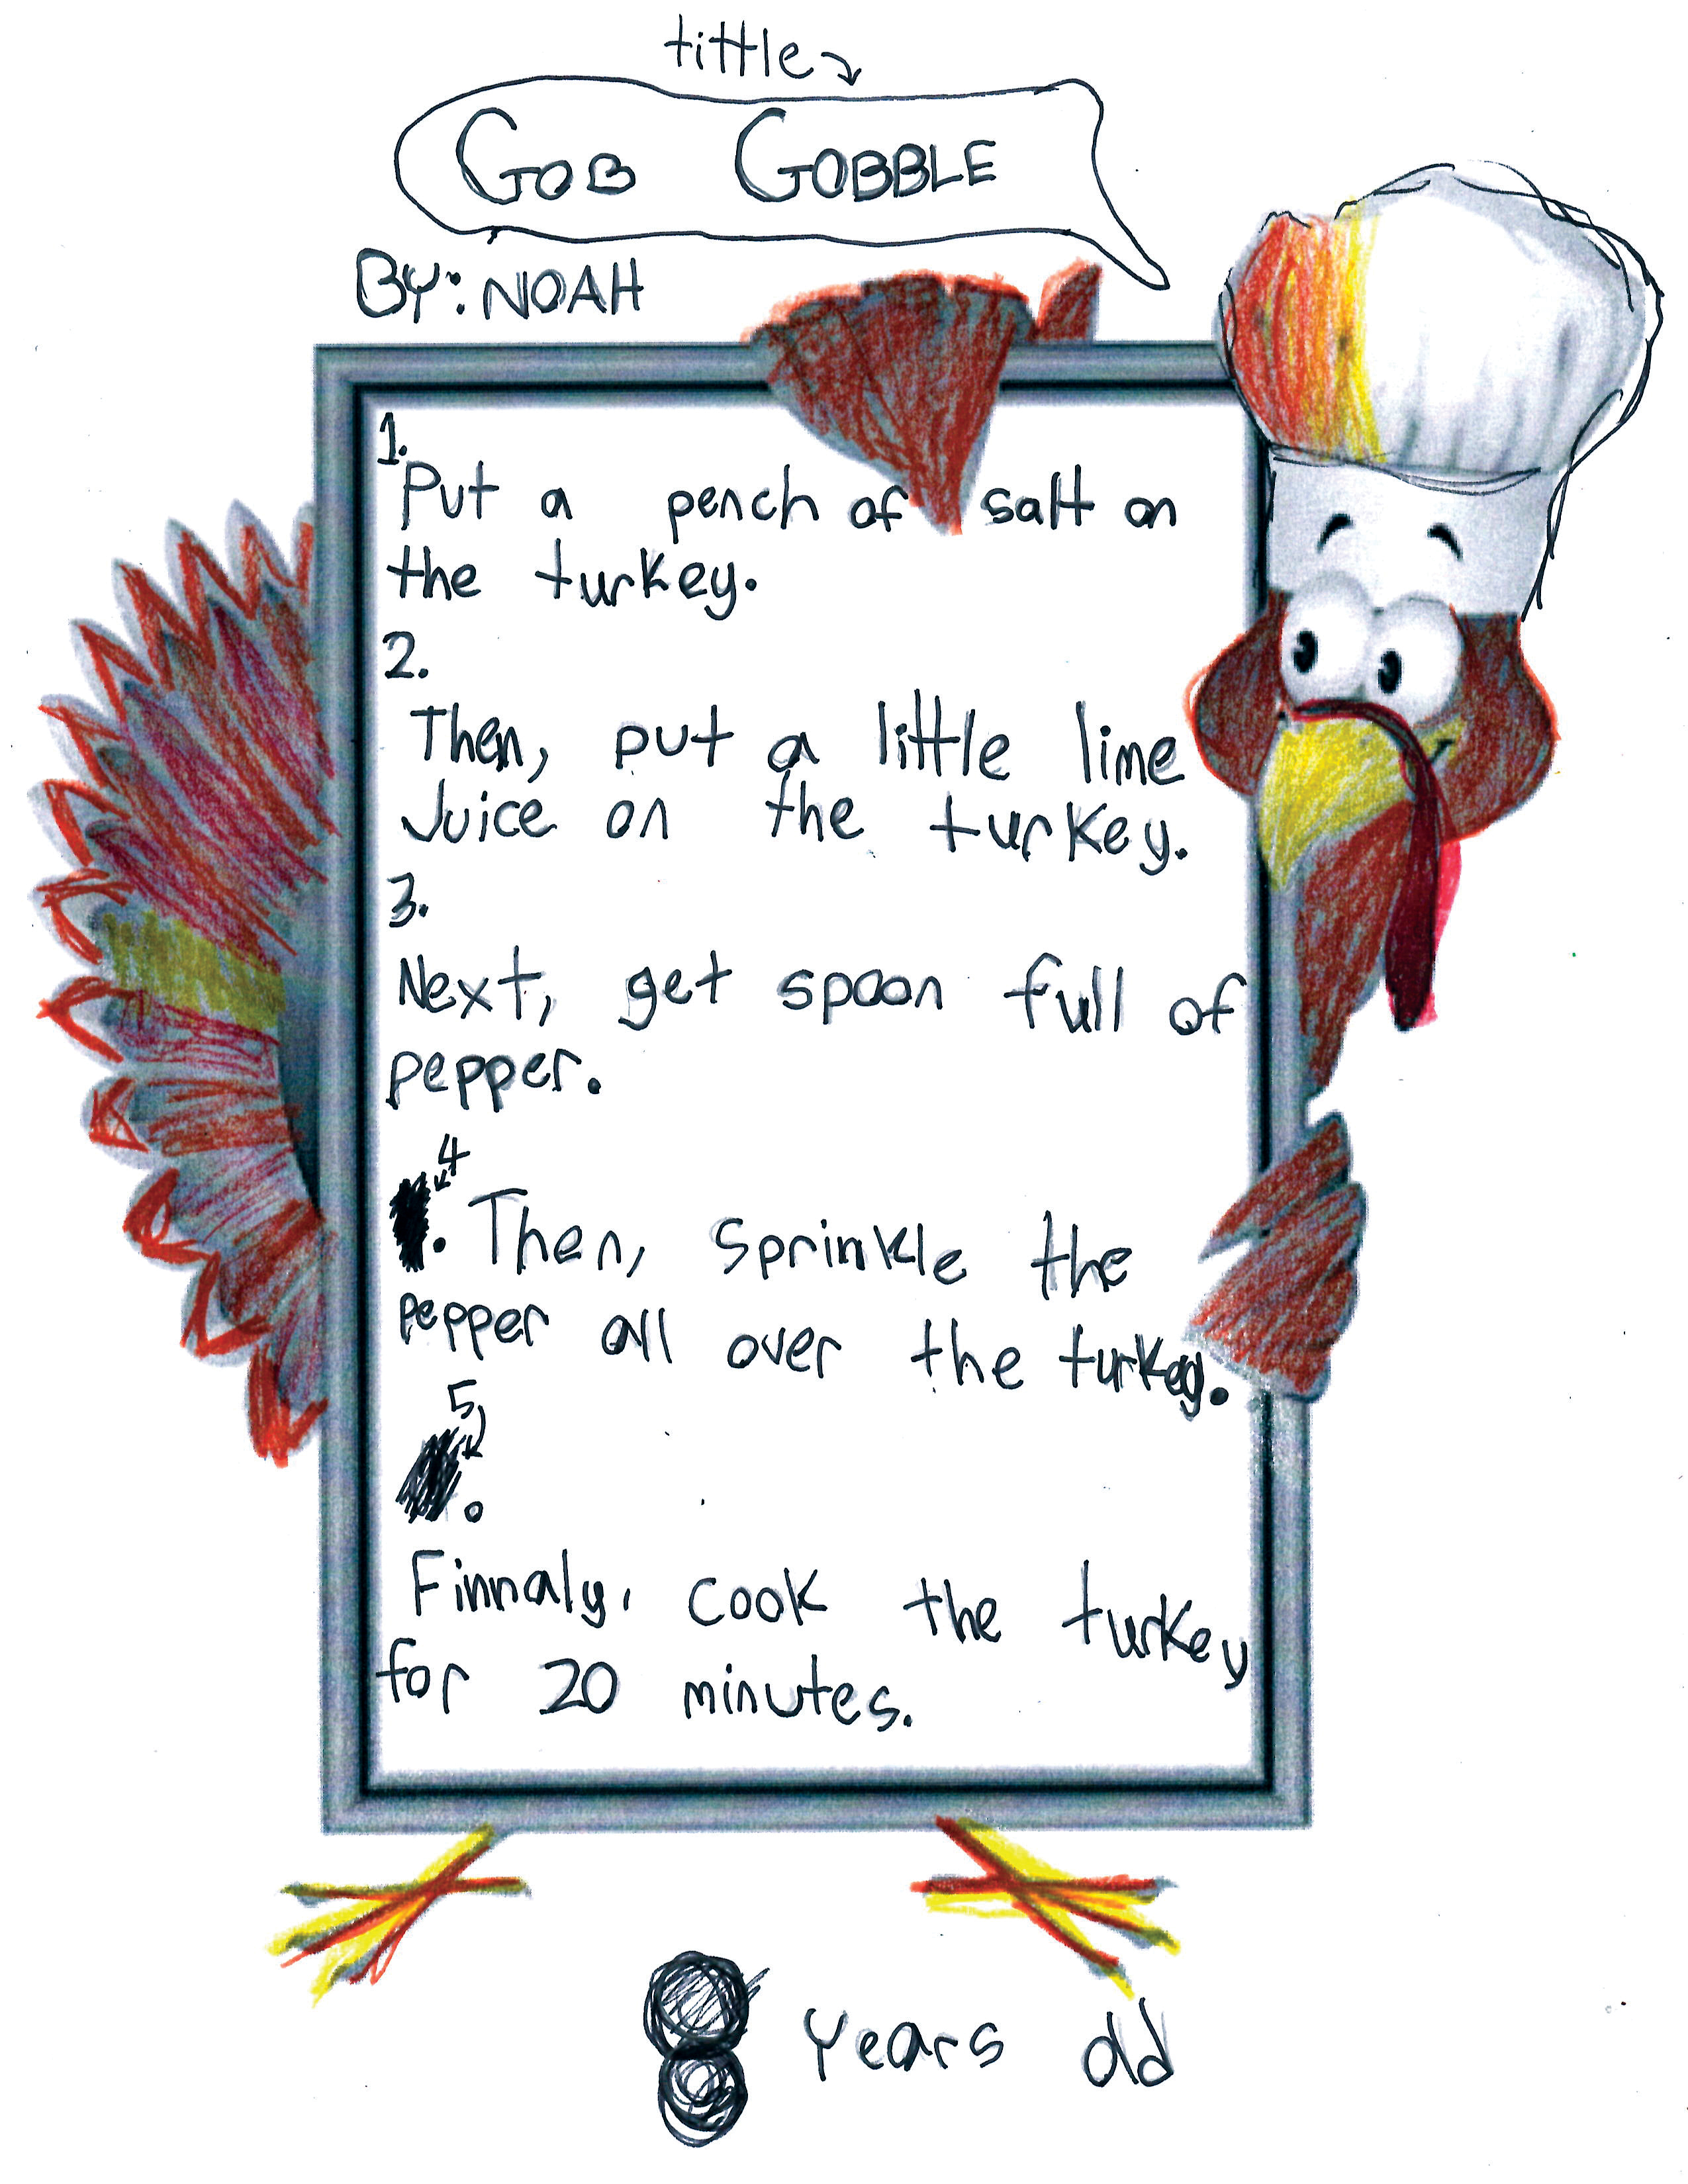 tittle
GOB GOBBLE
BY: NOAH
1.
Put a pench of salt on
the turkey.
2.
Then, put a little lime
Juice on the turkey.
3.
Next, get spoon full of
pepper.
4
. Then, sprinkle the
pepper all over the turkey.
5
.
Finnaly, cook the turkey
for 20 minutes.
8 years old